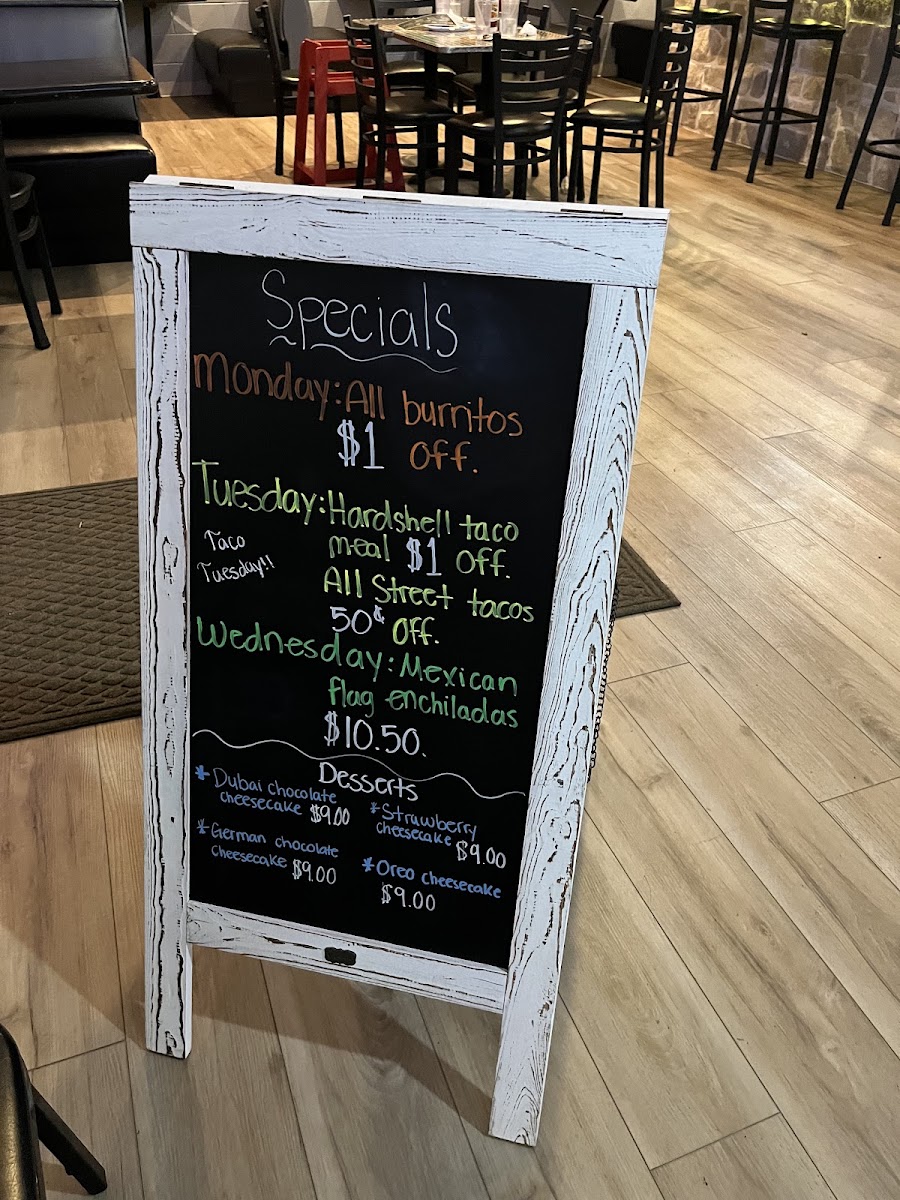 Specials
Monday: All burritos
$1 off.
Tuesday: Hardshell taco
meal $1 off.
Taco
Tuesday!!
All Street tacos
50¢ off.
Wednesday: Mexican
flag enchiladas
$10.50.
Desserts
* Dubai chocolate
cheesecake $9.00
* Strawberry
cheesecake $9.00
* German chocolate
cheesecake $9.00
* Oreo cheesecake
$9.00